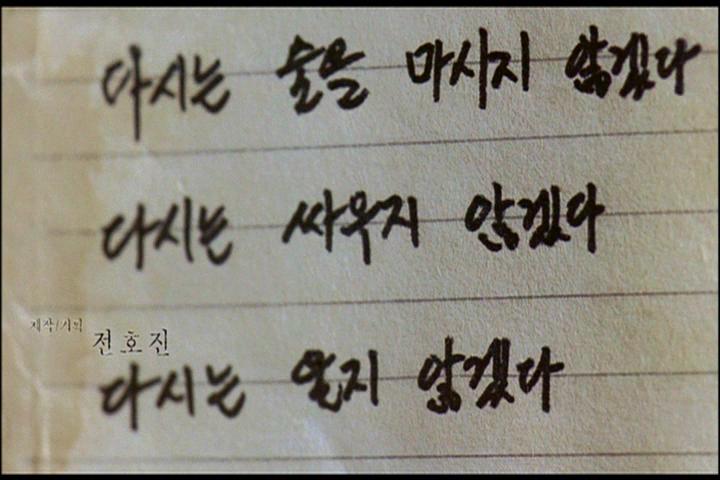 다시는 술을 마시지 않겠다
다시는 싸우지 않겠다
제작/기획 전호진
다시는 울지 않겠다